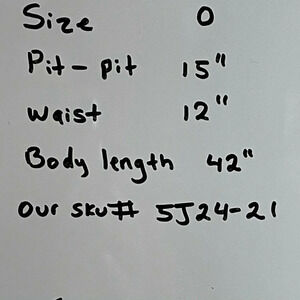 Size 0
Pit-pit 15"
Waist 12"
Body length 42"
Our sku# 5J24-21